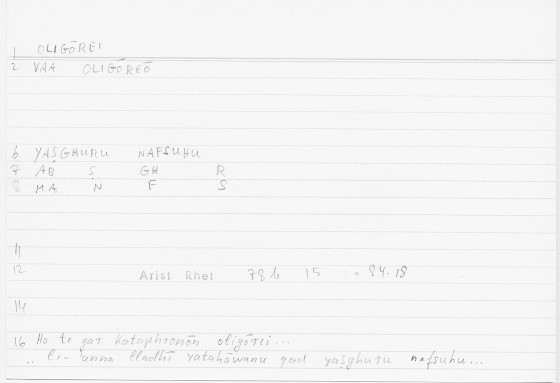 1 OLIGŌREI
2 VAA OLIGŌREŌ
6 YAṢGHURU NAFSUHU
7 AB Ṣ GH R
8 MA N F S
11
12 Arist Rhet 78 b 15 = 84.18
14
16 Ho te gar kataphronōn oligōrei...
.. li-'anna lladhī yatahāwanu qad yaṣghuru nafsuhu...